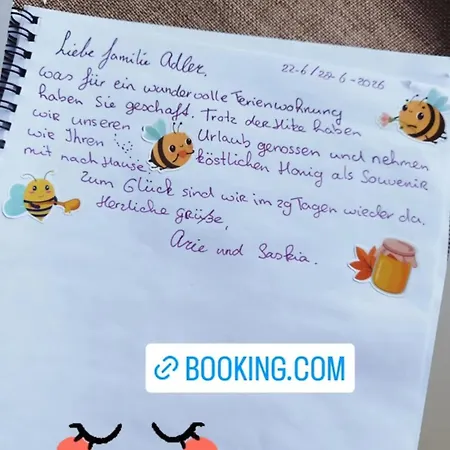 Liebe Familie Adler,
22-6/28-6-2026
was für ein wundervolle Ferienwohnung
haben Sie geschaft. Trotz der Hitze haben
wir unseren Urlaub genossen und nehmen
wie Ihren köstlichen Honig als Souvenir
mit nach Hause.
Zum Glück sind wir im 29 Tagen wieder da.
Herzliche grüße,
Arie und Saskia.
BOOKING.COM